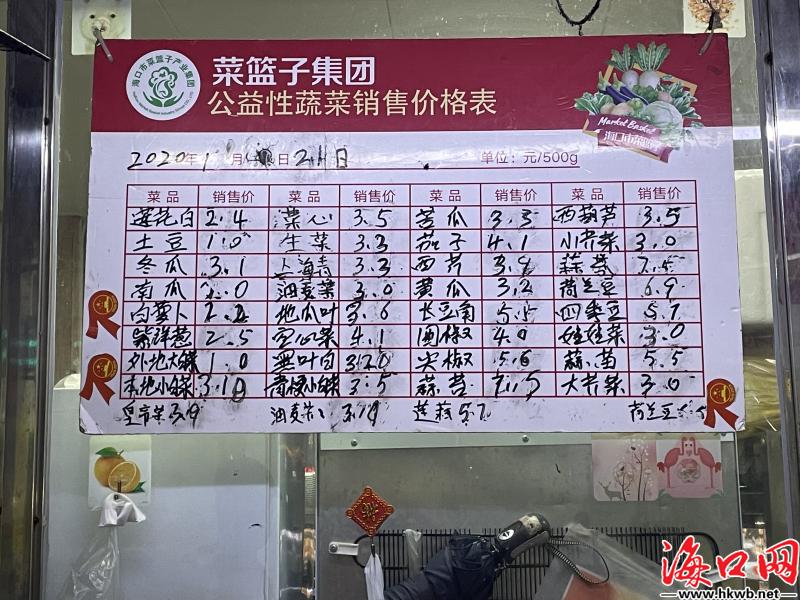 菜篮子集团
公益性蔬菜销售价格表
海口市菜篮子产业集团
Market Basket
海口市菜篮子
2020年1月 日21日 单位：元/500g
菜品 销售价 菜品 销售价 菜品 销售价 菜品 销售价
莲花白 2.4 菜心 3.5 苦瓜 3.3 西葫芦 3.5
土豆 1.0 生菜 3.3 茄子 4.1 小芥菜 3.0
冬瓜 3.1 上海青 3.3 西芹 3.9 蒜苔 7.5
南瓜 2.0 油麦菜 3.0 黄瓜 3.2 荷兰豆 6.9
白萝卜 2.2 地瓜叶 3.6 长豆角 5.5 四季豆 5.7
紫洋葱 2.5 空心菜 4.1 圆椒 4.0 娃娃菜 3.0
外地大 1.0 叶白 3.0 尖椒 5.6 蒜苗 5.5
本地小 3.10 3.5 蒜苔 7.5 大芥菜 3.0
皇帝菜 3.9 油麦菜 莲藕 5.7 荷兰豆
海口网
www.hkwb.net